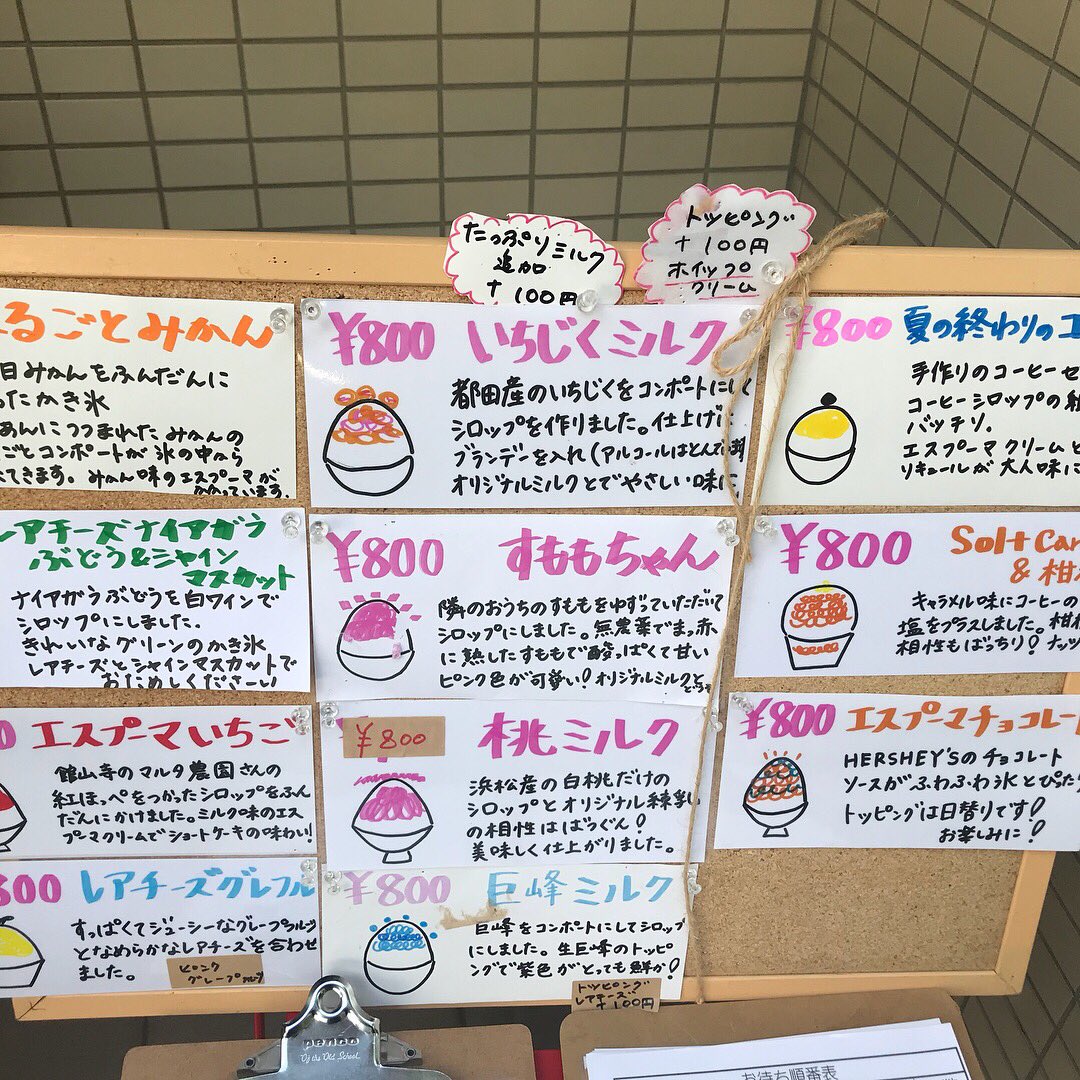 たっぷりミルク
追加
+100円
トッピング
+100円
ホイップ
クリーム
るごとみかん
日みかんをふんだんに
ったかき氷
あんにつつまれたみかんの
ごとコンポートが氷の中から
てきます。みかん味のエスプーマが
かかっています。
¥800 いちじくミルク
都田産のいちじくをコンポートにし
シロップを作りました。仕上げに
ブランデーを入れ(アルコールはとんで
オリジナルミルクとでやさしい味に
¥800 夏の終わりのエ
手作りのコーヒーゼ
コーヒーシロップの組
バッチリ。
エスプーマクリームと
リキュールが大人味に
レアチーズナイアガラ
ぶどう&シャイン
マスカット
ナイアガラぶどうを白ワインで
シロップにしました。
きれいなグリーンのかき氷
レアチーズとシャインマスカットで
おためしくださーい
¥800 すももちゃん
隣のおうちのすももをゆずっていただいて
シロップにしました。無農薬でま。赤
に熟したすももで酸っぱくて甘い
ピンク色が可愛い!オリジナルミルクと
どうぞ
¥800 Solt Car
& 柑
キャラメル味にコーヒーの
塩をプラスしました。柑
相性もばっちり!ナッツ
0 エスプーマいちご
館山寺のマルタ農園さんの
紅ほっぺをつかったシロップをふん
だんにかけました。ミルク味のエス
プーマクリームでショートケーキの味わい!
¥800 桃ミルク
浜松産の白桃だけの
シロップとオリジナル練乳
の相性はばつぐん!
美味しく仕上がりました。
¥800 エスプーマチョコレート
HERSHEY'Sのチョコレート
ソースがふわふわ氷とぴった
トッピングは日替りです!
お楽しみに!
800 レアチーズグレフル
すっぱくてジューシーなグレープフルーツ
となめらかなレアチーズを合わせ
ました。
ピンク
グレープフルーツ
¥800 巨峰ミルク
巨峰をコンポートにしてシロップ
にしました。生巨峰のトッピ
ングで紫色がとっても鮮か!
トッピング
レアチーズ
+100円
penco
Of the Old School
お待ち順番表